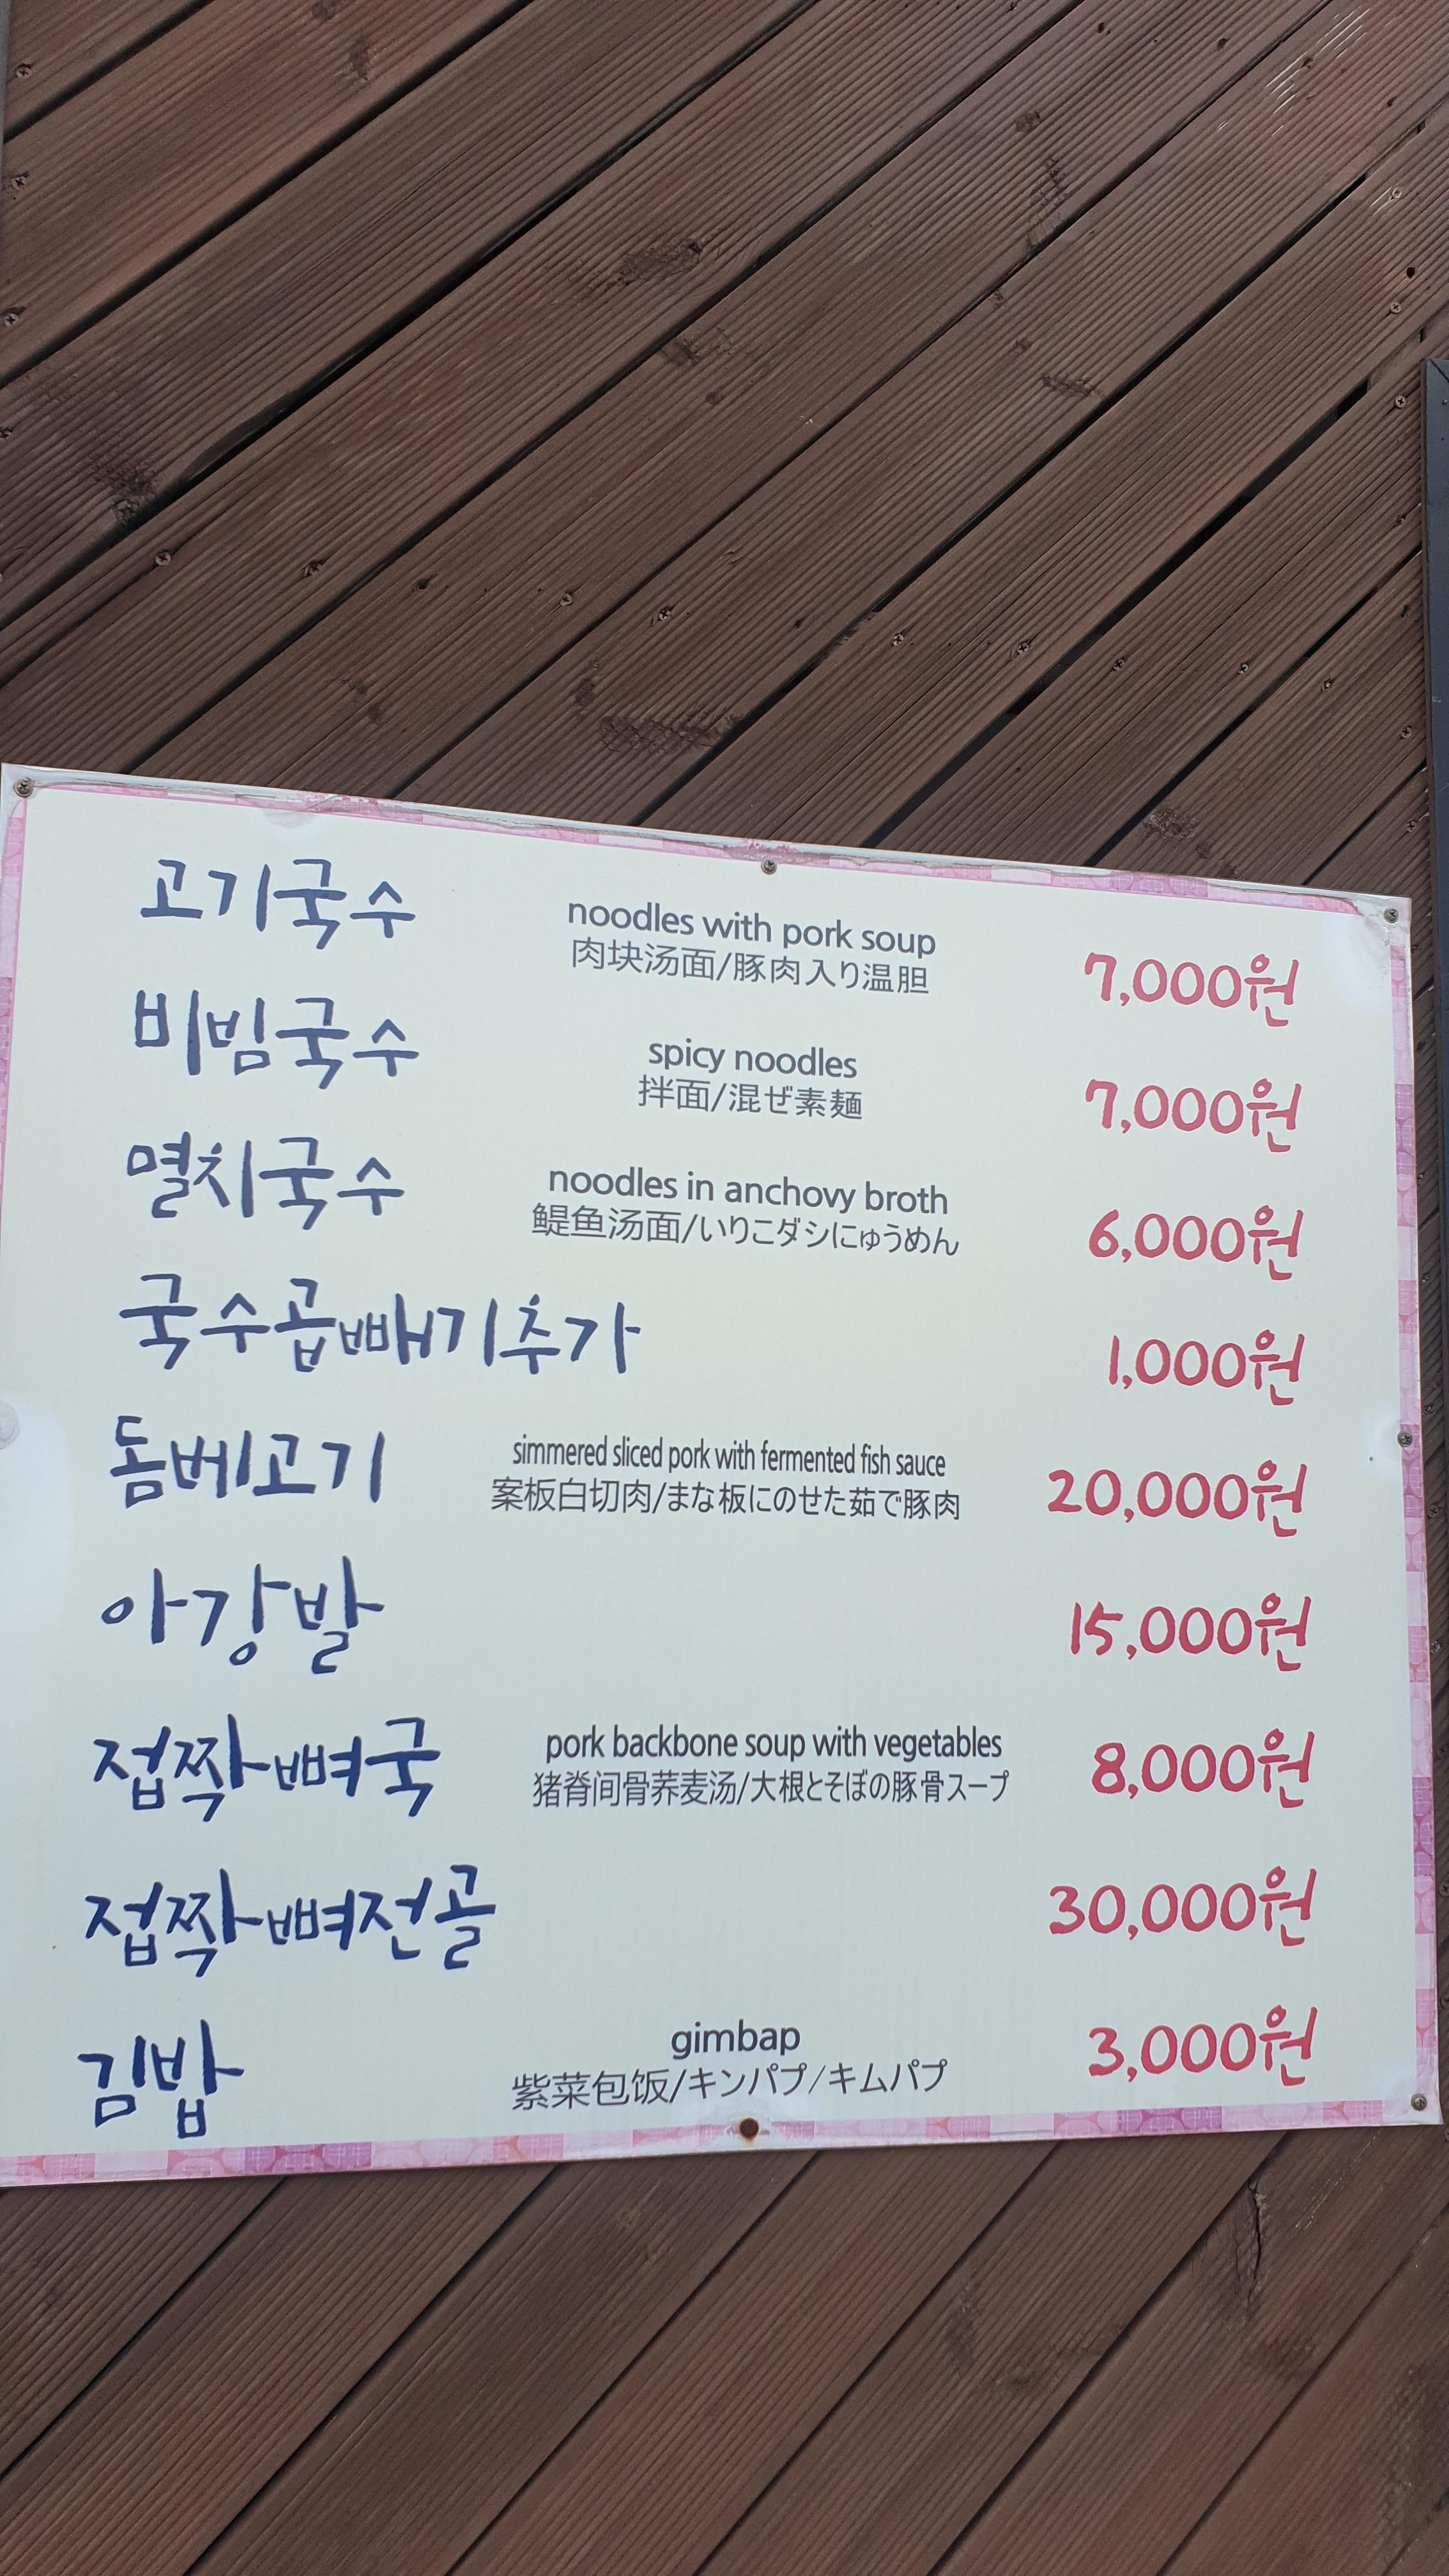 고기국수
noodles with pork soup
肉块汤面/豚肉入り温胆
7,000원
비빔국수
spicy noodles
拌面/混ぜ素麺
7,000원
멸치국수
noodles in anchovy broth
鳀鱼汤面/いりこダシにゅうめん
6,000원
국수곱빼기추가
1,000원
돔베고기
simmered sliced pork with fermented fish sauce
案板白切肉/まな板にのせた茹で豚肉
20,000원
아강발
15,000원
접짝뼈국
pork backbone soup with vegetables
猪脊间骨荞麦汤/大根とそぼの豚骨スープ
8,000원
접짝뼈전골
30,000원
김밥
gimbap
紫菜包饭/キンパプ/キムパプ
3,000원